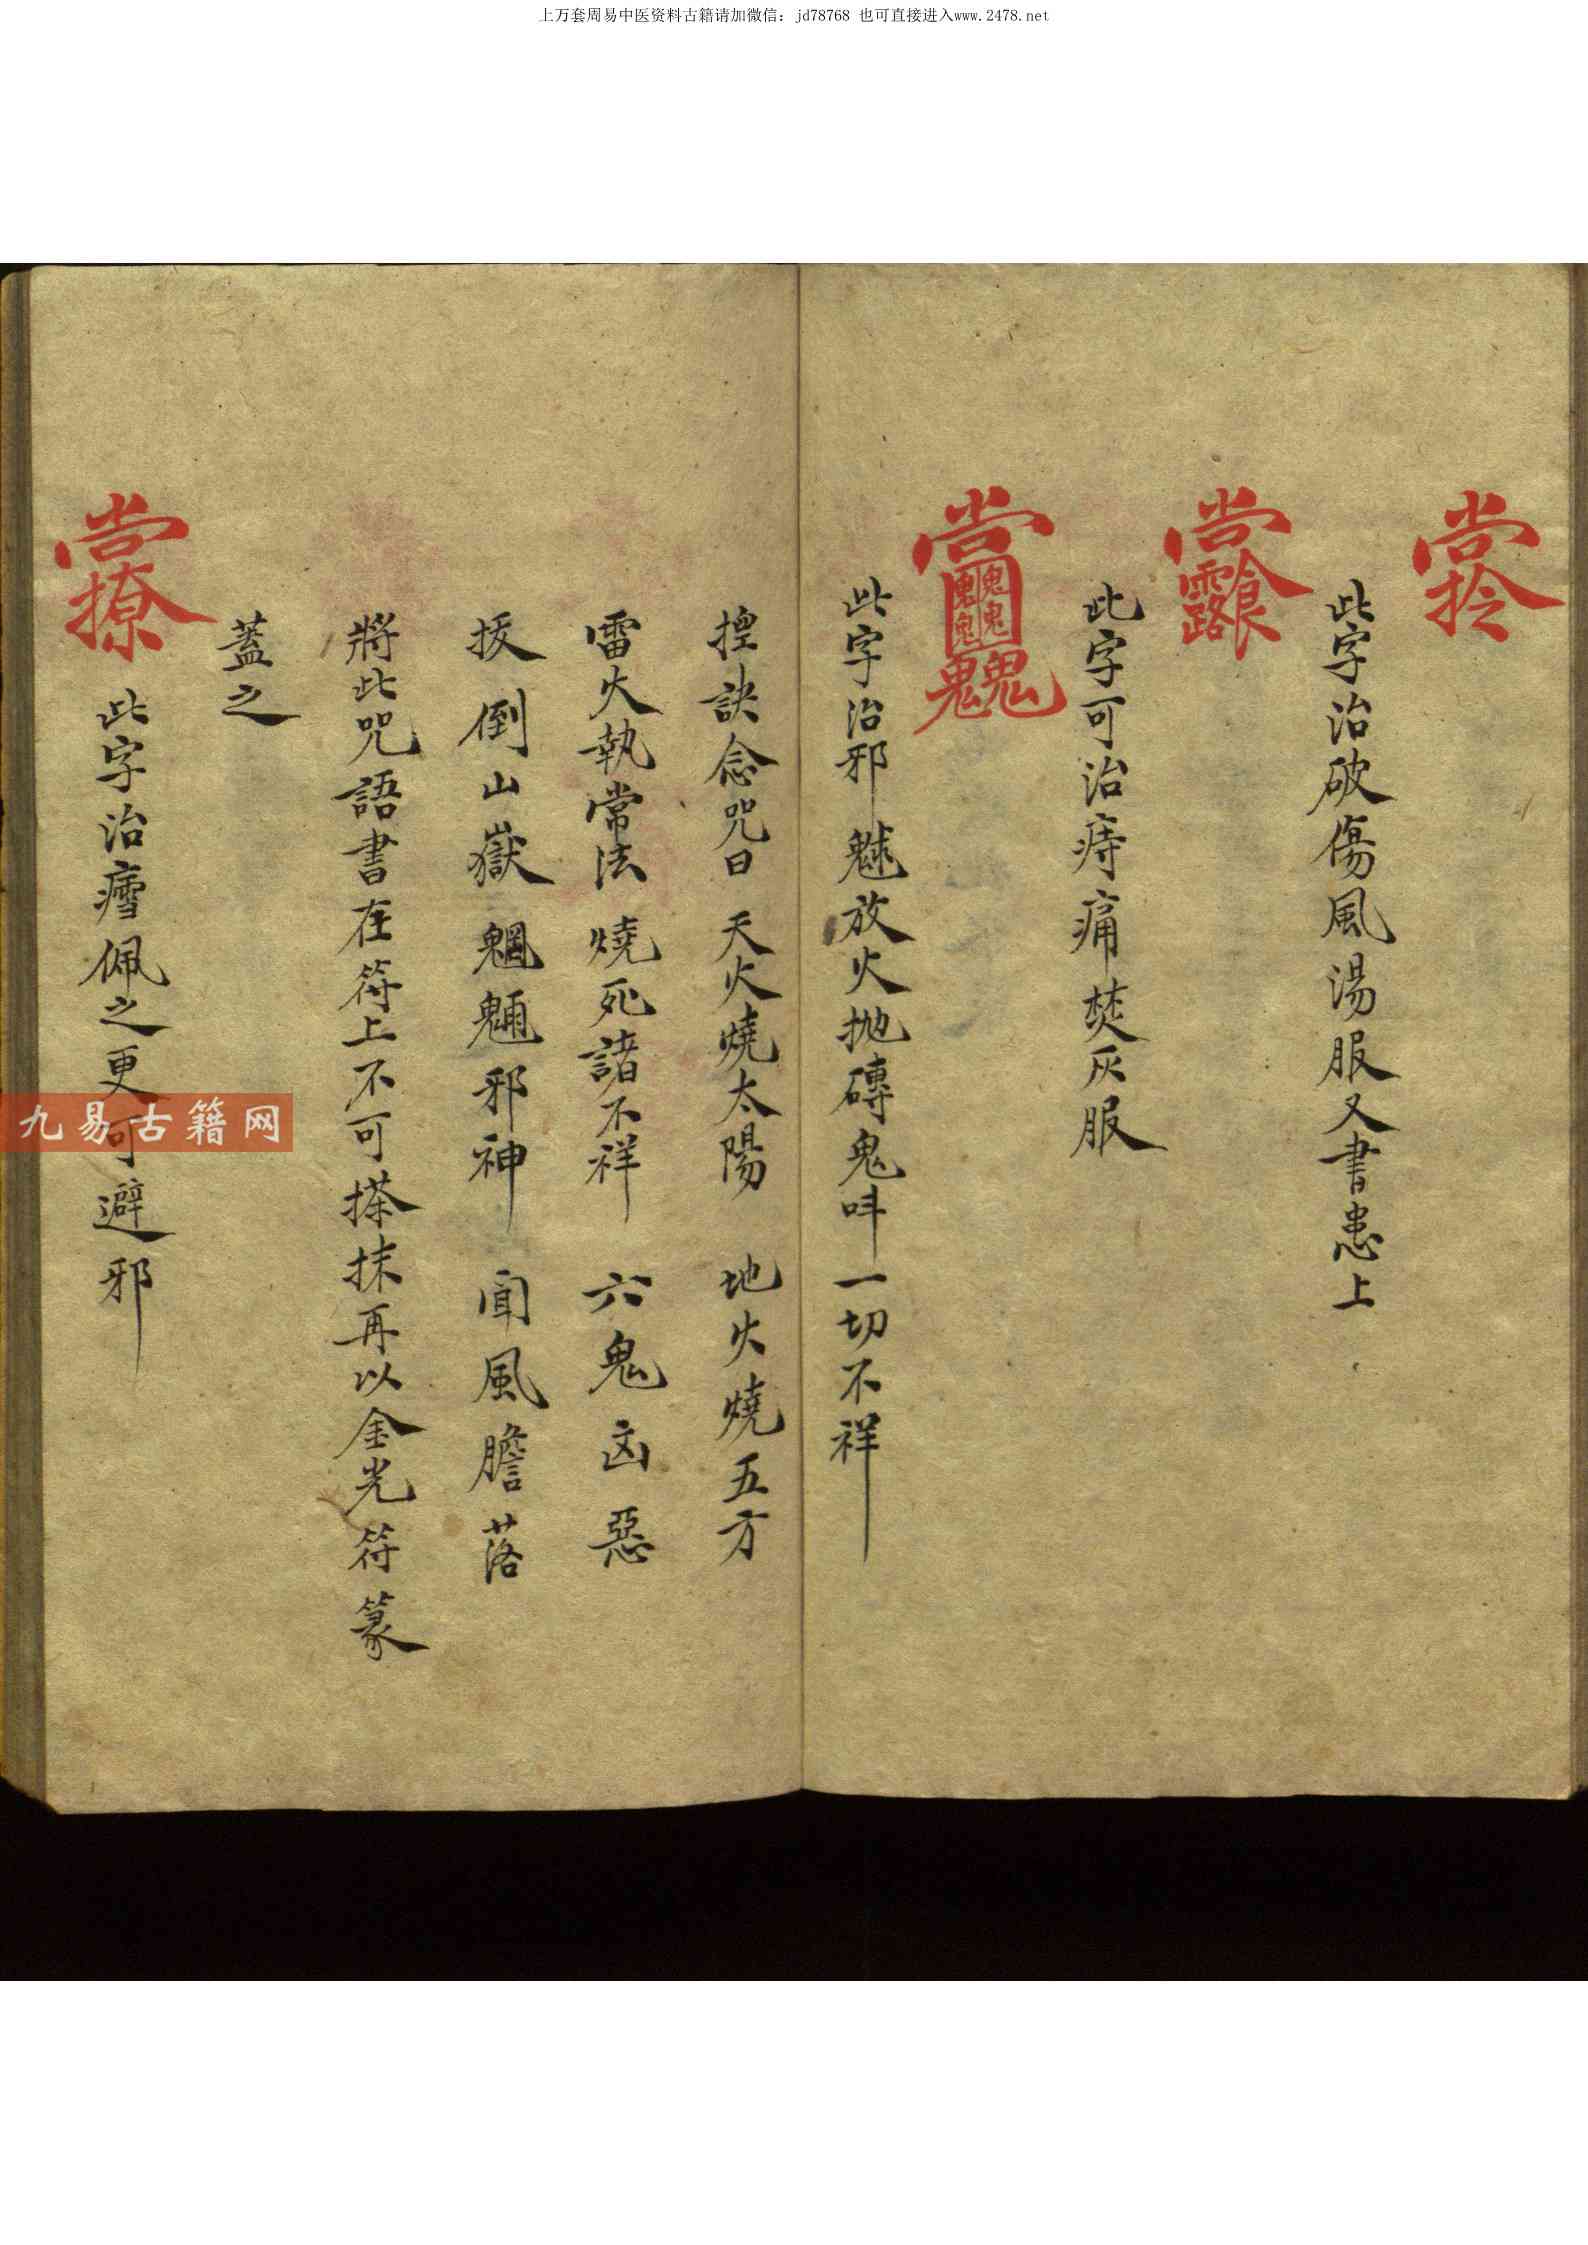 上万套周易中医资料古籍请加微信：jd78768 也可直接进入www.2478.net
此字治破傷風湯服又書患上
此字可治痔痛焚灰服
此字治邪魅放火抛磚鬼呌一切不祥
揑訣念咒曰 天火燒太陽 地火燒五方
雷火執常法 燒死諸不祥 六鬼凶惡
拔倒山嶽 魍魎邪神 聞風膽落
將此咒語書在符上不可搽抹再以金光符篆
蓋之
此字治佩之更可避邪
九易古籍网